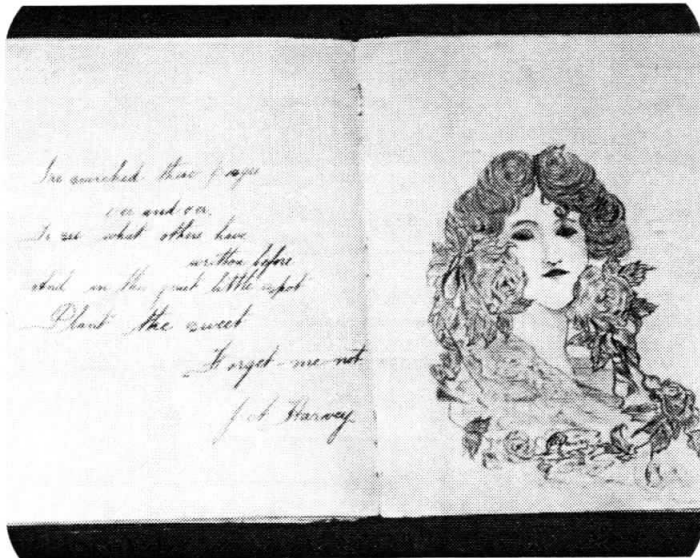 I've searched these pages
over and over,
To see what others have
written before
And in this quiet little spot
Plant the sweet
Forget-me-not
J. A. Harvey